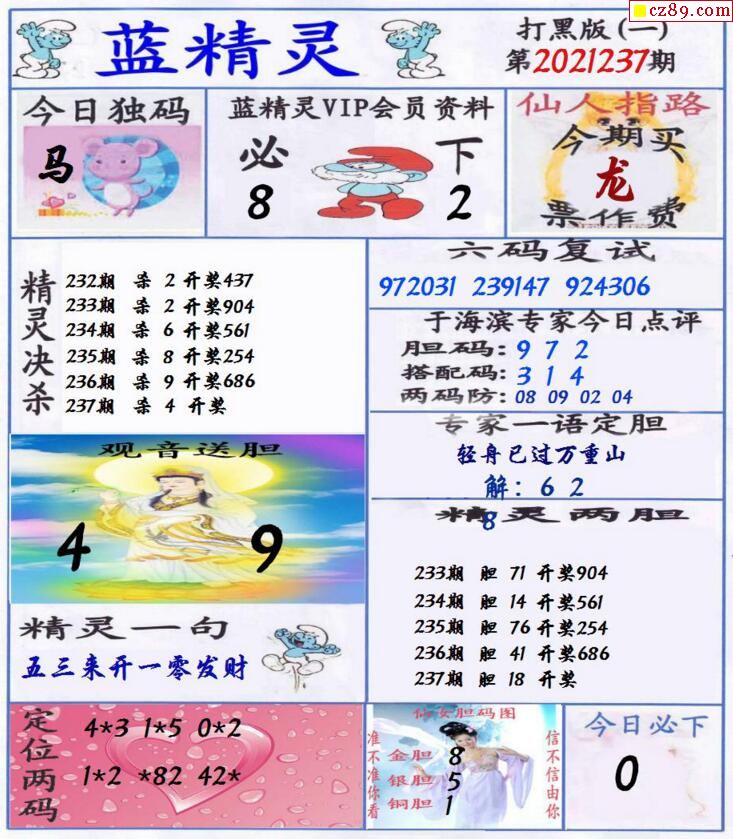 cz89.com
蓝精灵
打黑版(一)
第2021237期
今日独码
马
蓝精灵VIP会员资料
必 下
8 2
仙人指路
今期买
龙
票作费
精灵决杀
232期 杀 2 开奖437
233期 杀 2 开奖904
234期 杀 6 开奖561
235期 杀 8 开奖254
236期 杀 9 开奖686
237期 杀 4 开奖
六码复试
972031 239147 924306
于海滨专家今日点评
胆码: 9 7 2
搭配码: 3 1 4
两码防: 08 09 02 04
专家一语定胆
轻舟已过万重山
解: 6 2
8
观音送胆
4 9
精灵两胆
233期 胆 71 开奖904
234期 胆 14 开奖561
235期 胆 76 开奖254
236期 胆 41 开奖686
237期 胆 18 开奖
精灵一句
五三来开一零发财
定位两码
4*3 1*5 0*2
1*2 *82 42*
仙女胆码图
准不准你看
金胆 8
银胆 5
铜胆 1
信不信由你
今日必下
0